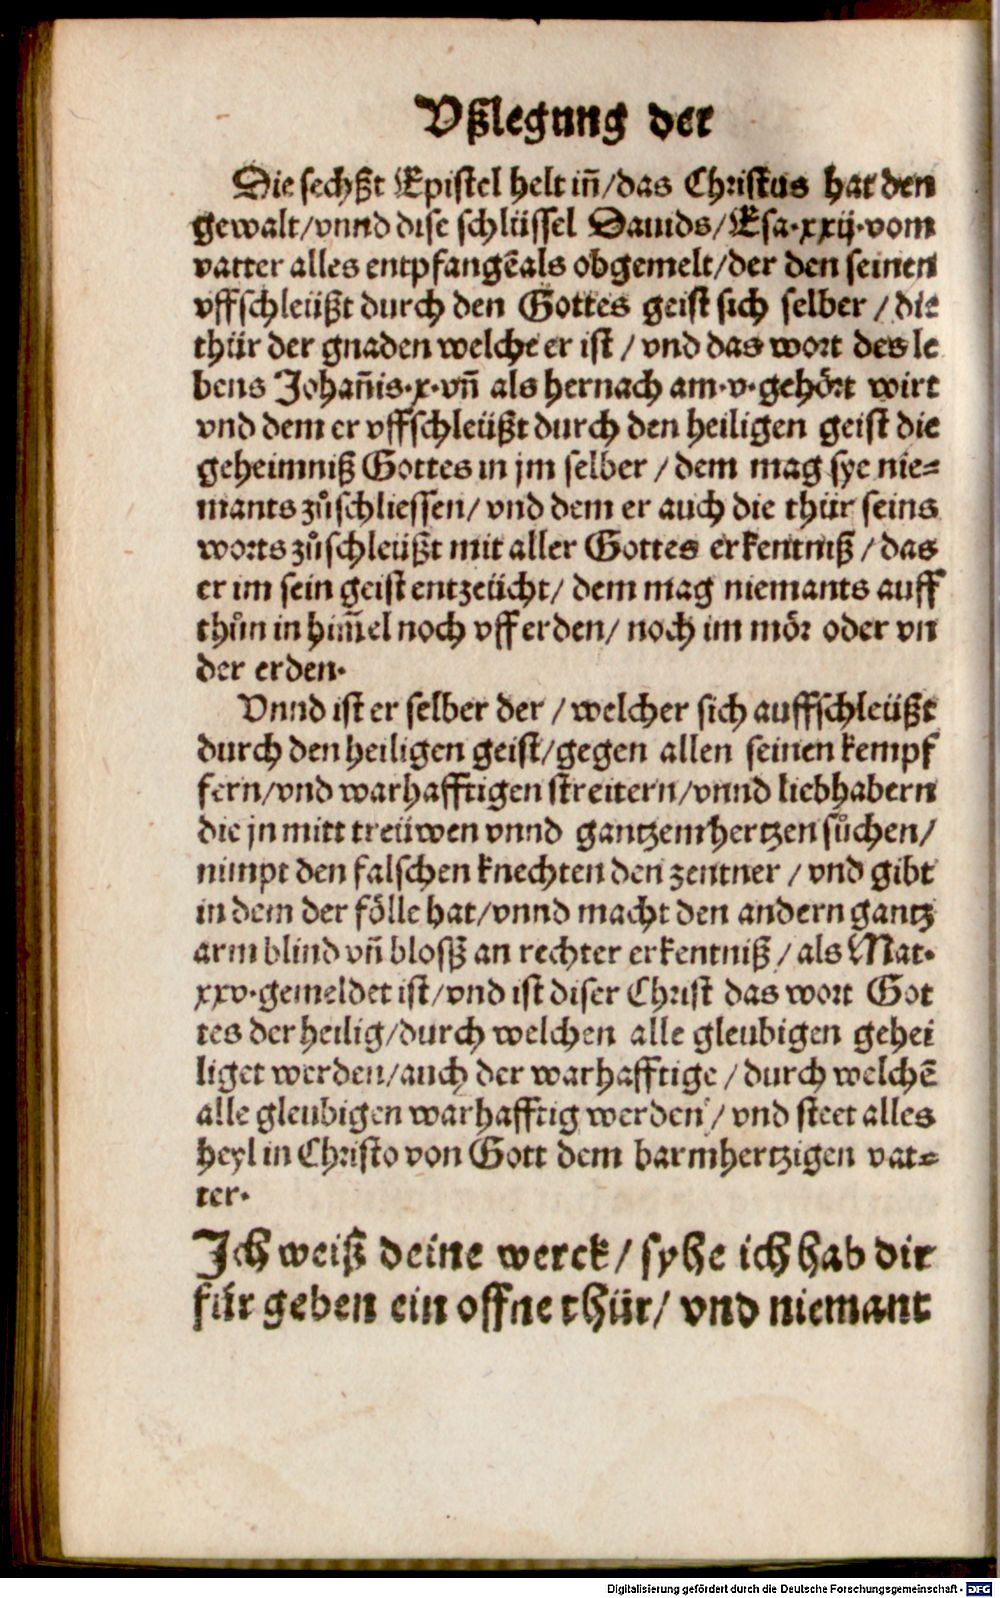 Vßlegung der
Die sechßt Epistel helt iñ/das Christus hat den
gewalt/vnnd dise schlüssel Dauids/Esa.xxij.vom
vatter alles entpfangẽals obgemelt/der den seinen
vffschleüßt durch den Gottes geist sich selber/die
thür der gnaden welche er ist/vnd das wort des le
bens Johañis.x.vñ als hernach am.v.gehört wirt
vnd dem er vffschleüßt durch den heiligen geist die
geheimniß Gottes in jm selber/dem mag sye nie=
mants zůschliessen/vnd dem er auch die thür seins
worts zůschleüßt mit aller Gottes erkentniß/das
er im sein geist entzeücht/dem mag niemants auff
thůn in him̃el noch vff erden/noch im mör oder vn
der erden.
Vnnd ist er selber der/welcher sich auffschleüßt
durch den heiligen geist/gegen allen seinen kempf
fern/vnd warhafftigen streitern/vnnd liebhabern
die jn mitt treüwen vnnd gantzem hertzen sůchen/
nimpt den falschen knechten den zentner/vnd gibt
in dem der fölle hat/vnnd macht den andern gantz
arm blind vñ blosß an rechter erkentniß/als Mat.
xxv.gemeldet ist/vnd ist diser Christ das wort Got
tes der heilig/durch welchen alle gleubigen gehei
liget werden/auch der warhafftige/durch welchẽ
alle gleubigen warhafftig werden/vnd steet alles
heyl in Christo von Gott dem barmhertzigen vat=
ter.
Ich weiß deine werck/syhe ich hab dir
für geben ein offne thür/vnd niemant
Digitalisierung gefördert durch die Deutsche Forschungsgemeinschaft - DFG